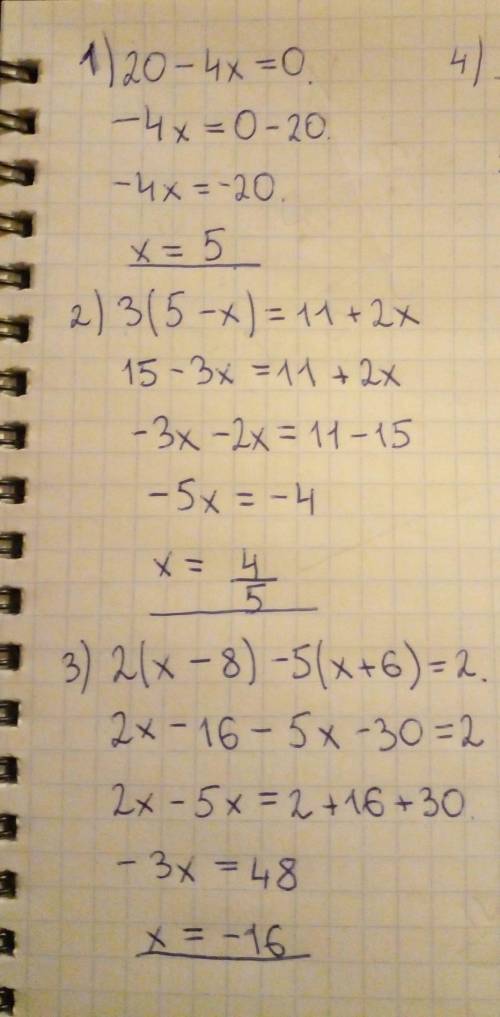 1) 20 - 4x = 0. 4)
-4x = 0 - 20.
-4x = -20.
x = 5
2) 3(5 - x) = 11 + 2x
15 - 3x = 11 + 2x
-3x - 2x = 11 - 15
-5x = -4
x = 4/5
3) 2(x - 8) - 5(x + 6) = 2.
2x - 16 - 5x - 30 = 2
2x - 5x = 2 + 16 + 30.
-3x = 48
x = -16